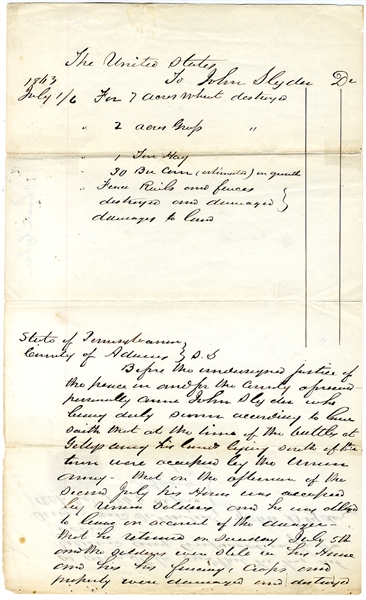 The United States
To John Slyder Dr
1863
July 1/6 For 7 acres Wheat destroyed
" 2 acres Grass "
" 1 Ton Hay
" 30 Bu Corn (estimated) in growth
" Fence Rails and fences
destroyed and damaged
damages to land
State of Pennsylvania
County of Adams } S.S
Before the undersigned justice of
the peace in and for the County aforesaid
personally came John Slyder who
being duly sworn according to law
saith that at the time of the battle at
Gettysburg his land lying south of the
town were occupied by the Union
army - that on the afternoon of the
second July his House was occupied
by Union Soldiers and he was obliged
to leave on account of the danger -
that he returned on Sunday July 5th
and the soldiers were still in his House
and his fencing, crops and
property were damaged and destroyed